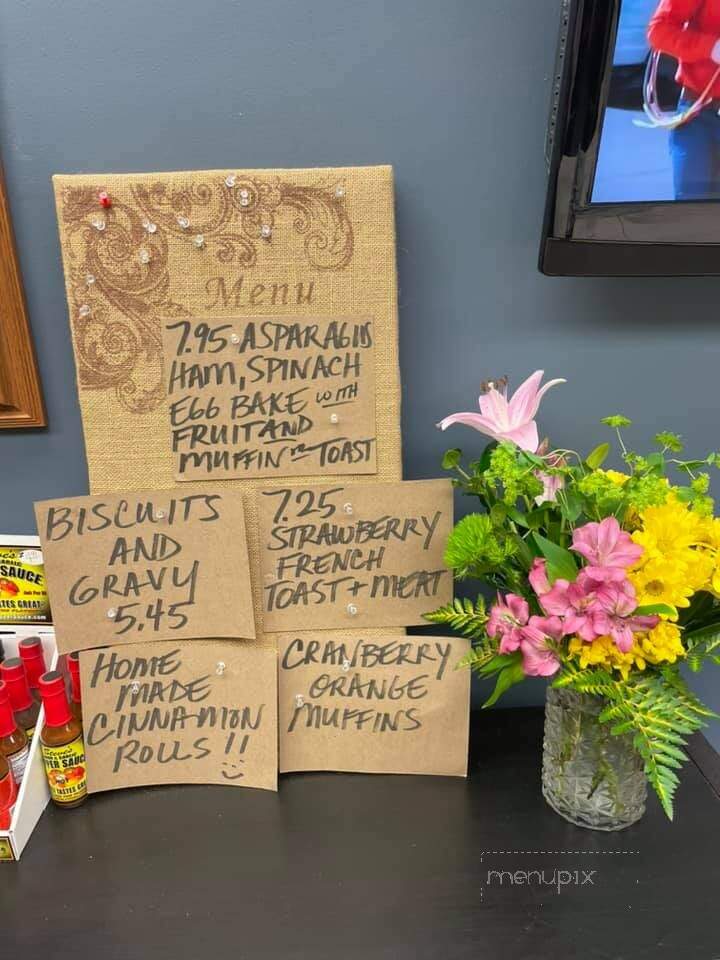 Menu
7.95 ASPARAGUS
HAM, SPINACH
EGG BAKE WITH
FRUIT AND
MUFFIN OR TOAST
BISCUITS
AND
GRAVY
5.45
7.25
STRAWBERRY
FRENCH
TOAST + MEAT
HOME
MADE
CINNAMON
ROLLS!!
CRANBERRY
ORANGE
MUFFINS
SAUCE
TASTES GREAT
Steve's
TASTES GREAT
menupix